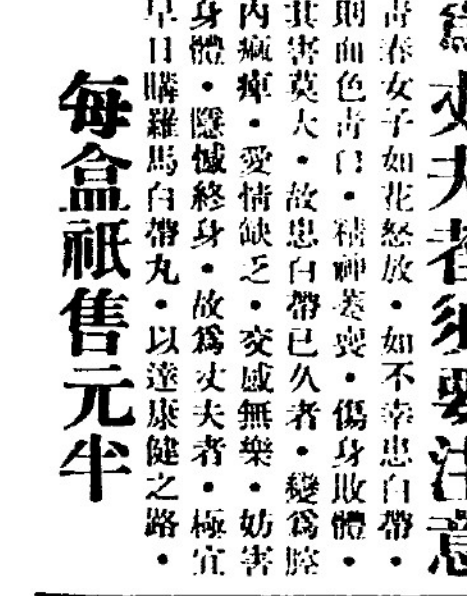 爲丈夫者須要注意
青春女子如花怒放・如不幸患白帶・
則血色青白・精神萎喪・傷身敗體・
其害莫大・故患白帶已久者・變爲腔
內癩痺・愛情缺乏・交感無樂・妨害
身體・隱憾終身・故爲丈夫者・極宜
早日購羅馬白帶丸・以達康健之路・
每盒祇售元半